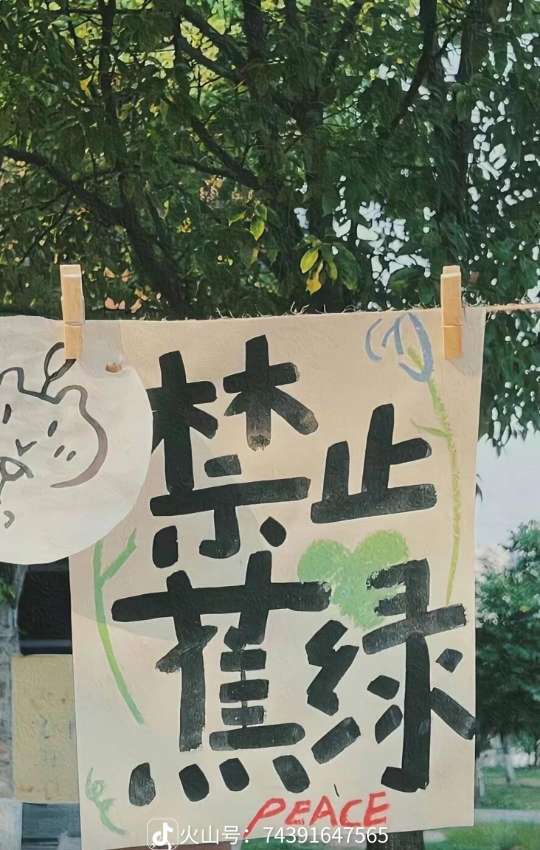 禁止
蕉绿
PEACE
火山号：74391647565